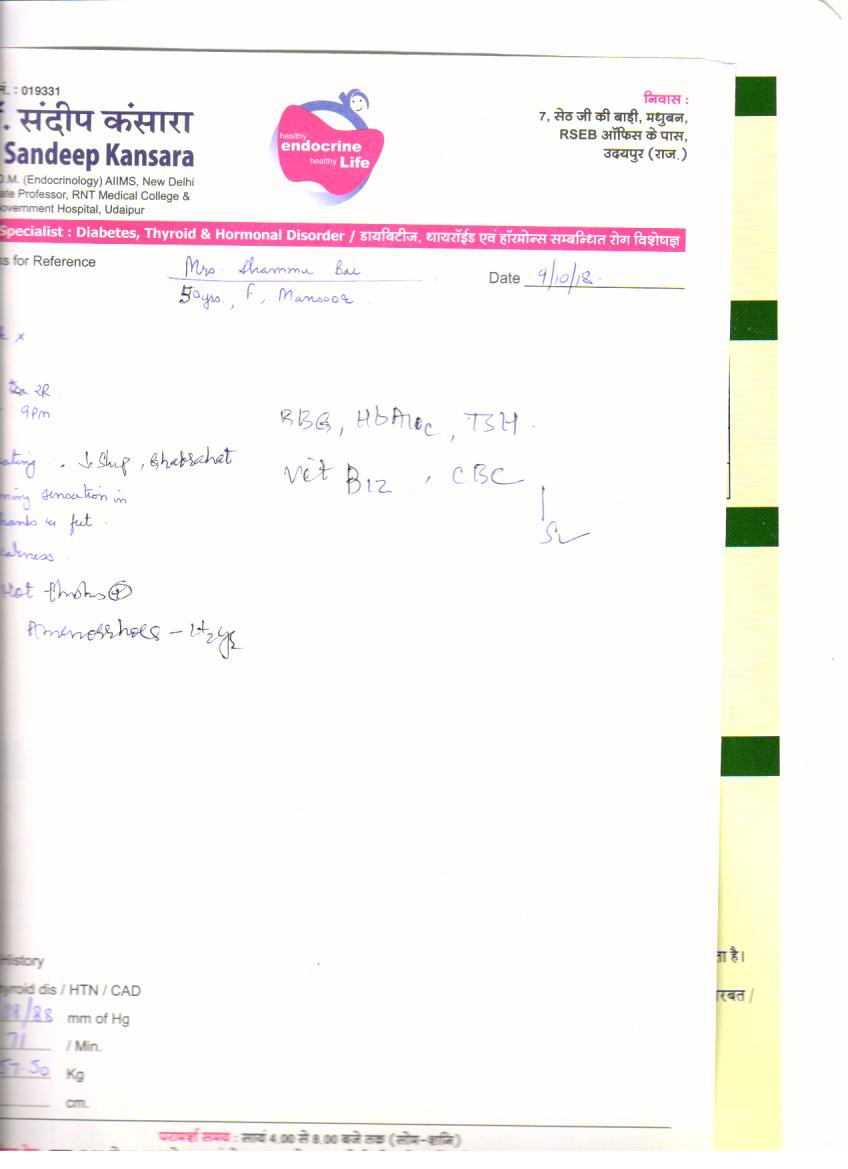 नं. : 019331
. संदीप कंसारा
Sandeep Kansara
D.M. (Endocrinology) AIIMS, New Delhi
ate Professor, RNT Medical College &
overnment Hospital, Udaipur
healthy
endocrine
healthy Life
निवास :
7, सेठ जी की बाड़ी, मधुबन,
RSEB ऑफिस के पास,
उदयपुर (राज.)
Specialist : Diabetes, Thyroid & Hormonal Disorder / डायबिटीज, थायरॉईड एवं हॉरमोन्स सम्बन्धित रोग विशेषज्ञ
s for Reference
Mrs. Shammu Bai
Date 9/10/18.
50yrs., F, Mansoor
x
2R
9pm
RBG, HbA1c, TSH.
ating . ↓ Slup, Ghabrahat
Vit B12 , CBC
ning sensation in
hands & feet.
eakness
Hot flushes +
Amenorrhoea -
History
yroid dis / HTN / CAD
/88 mm of Hg
71 / Min.
57.50 Kg
cm.
ता है।
रबत /
परामर्श समय : सायं 4.00 से 8.00 बजे तक (सोम-शनि)